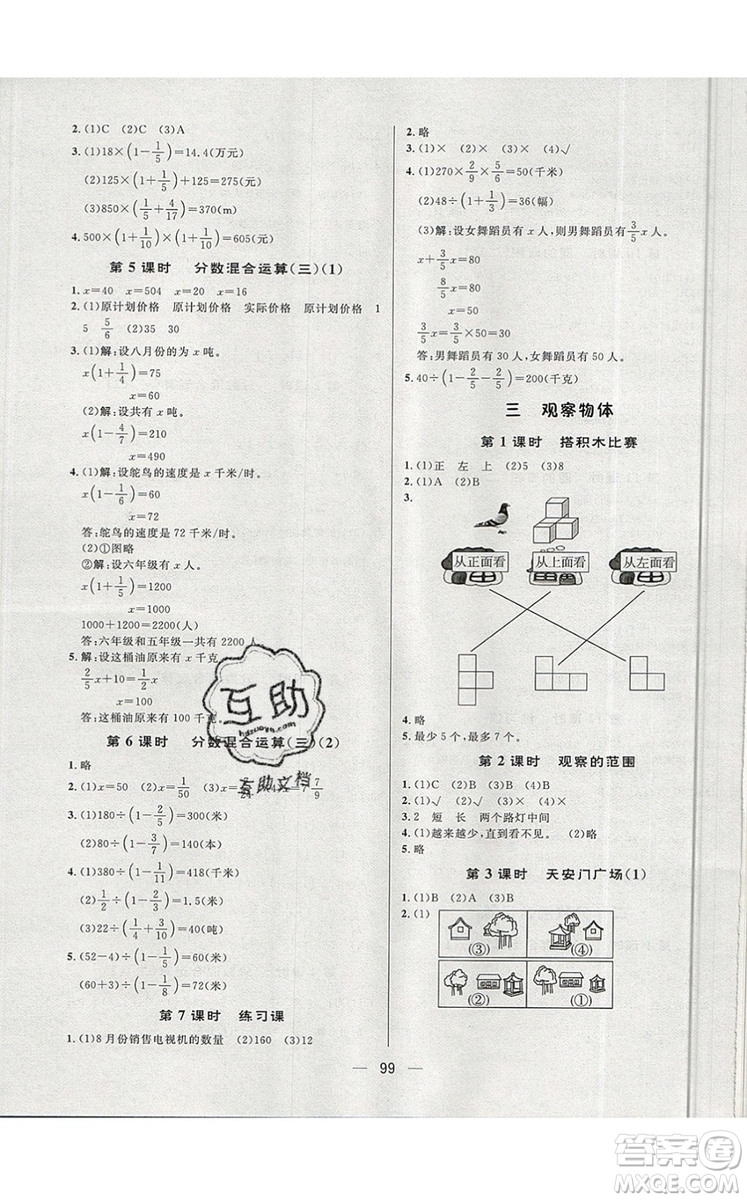 2. (1)C (2)C (3)A
3. (1)18×(1-1/5)=14.4(万元)
(2)125×(1+1/5)+125=275(元)
(3)850×(1/5+4/17)=370(m)
4. 500×(1+1/10)×(1+1/10)=605(元)
第 5 课时 分数混合运算(三)(1)
1. x=40 x=504 x=20 x=16
2. (1)原计划价格 原计划价格 实际价格 原计划价格 1
5 5/6 (2)35 30
3. (1)解:设八月份的为 x 吨。
x(1+1/4)=75
x=60
(2)解:设共有 x 吨。
x(1-4/7)=210
x=490
4. (1)解:设鸵鸟的速度是 x 千米/时。
x(1-1/6)=60
x=72
答:鸵鸟的速度是 72 千米/时。
(2)①图略
②解:设六年级有 x 人。
x(1+1/5)=1200
x=1000
1000+1200=2200(人)
答:六年级和五年级一共有 2200 人。
5. 解:设这桶油原来有 x 千克。
2/5x+10=1/2x
x=100
答:这桶油原来有 100 千克。
第 6 课时 分数混合运算(三)(2)
1. 略
2. (1)x=50 (2)x=1/50 (3)x=
7/9
3. (1)180÷(1-2/5)=300(米)
(2)80÷(1-3/7)=140(本)
4. (1)180÷(1-2/11)=220(千米)
(2)1/2÷(1-1/6)=3/5(千米)
(3)22÷(1/4+3/10)=40(米)
5. (52-4)÷(1-1/5)=60(米)
(60+3)÷(1-1/8)=72(米)
第 7 课时 练习课
1. (1)8 月份销售电视机的数量 (2)160 (3)12
2. 略
3. (1)× (2)× (3)× (4)√
4. (1)270×2/9×5/6=50(千米)
(2)48÷(1+1/3)=36(幅)
(3)解:设女舞蹈员有 x 人,则男舞蹈员有 3/5x 人。
x+3/5x=80
x=50
3/5x=3/5×50=30
答:男舞蹈员有 30 人,女舞蹈员有 50 人。
5. 40÷(1-2/5-2/5)=200(千克)
三 观察物体
第 1 课时 搭积木比赛
1. (1)正 左 上 (2)5 (3)8
2. (1)A (2)B
3.
从正面看 从上面看 从左面看
4. 略
5. 最少 5 个,最多 7 个。
第 2 课时 观察的范围
1. (1)C (2)B (3)B (4)B
2. (1)√ (2)√ (3)× (4)√
3. 2 短 长 两个路灯中间
4. (1)越来越少,直到看不见。 (2)略
5. 略
第 3 课时 天安门广场(1)
1. (1)B (2)A (3)B
2. (1)
(③) (④)
(②) (①)
99
互助
互助文档
答案圈
MXQE.COM